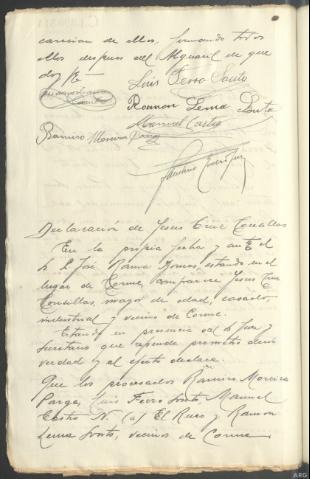 carricion de ellos, firmando todos
ellos despues del Alguacil de que
doy fé
Luis Ferro Souto
Ramon Lema Souto
Manuel Castro
Ramiro Moreira Parga
Declaración de Jesus Tine Consillas
En la propia fecha y ante el
S. José Ramon, estando en el
lugar de Corme, comparece Jesus Tine
Consillas, mayor de edad, casado,
industrial y vecino de Corme.
Estando en presencia del S. Juez y
Secretario que ofrende promete decir
verdad y al efecto declara
Que los procesados Ramiro Moreira
Parga, Luis Ferro Souto, Manuel
Castro N. (a) El Ruso y Ramon
Lema Souto, vecinos de Corme
ARG